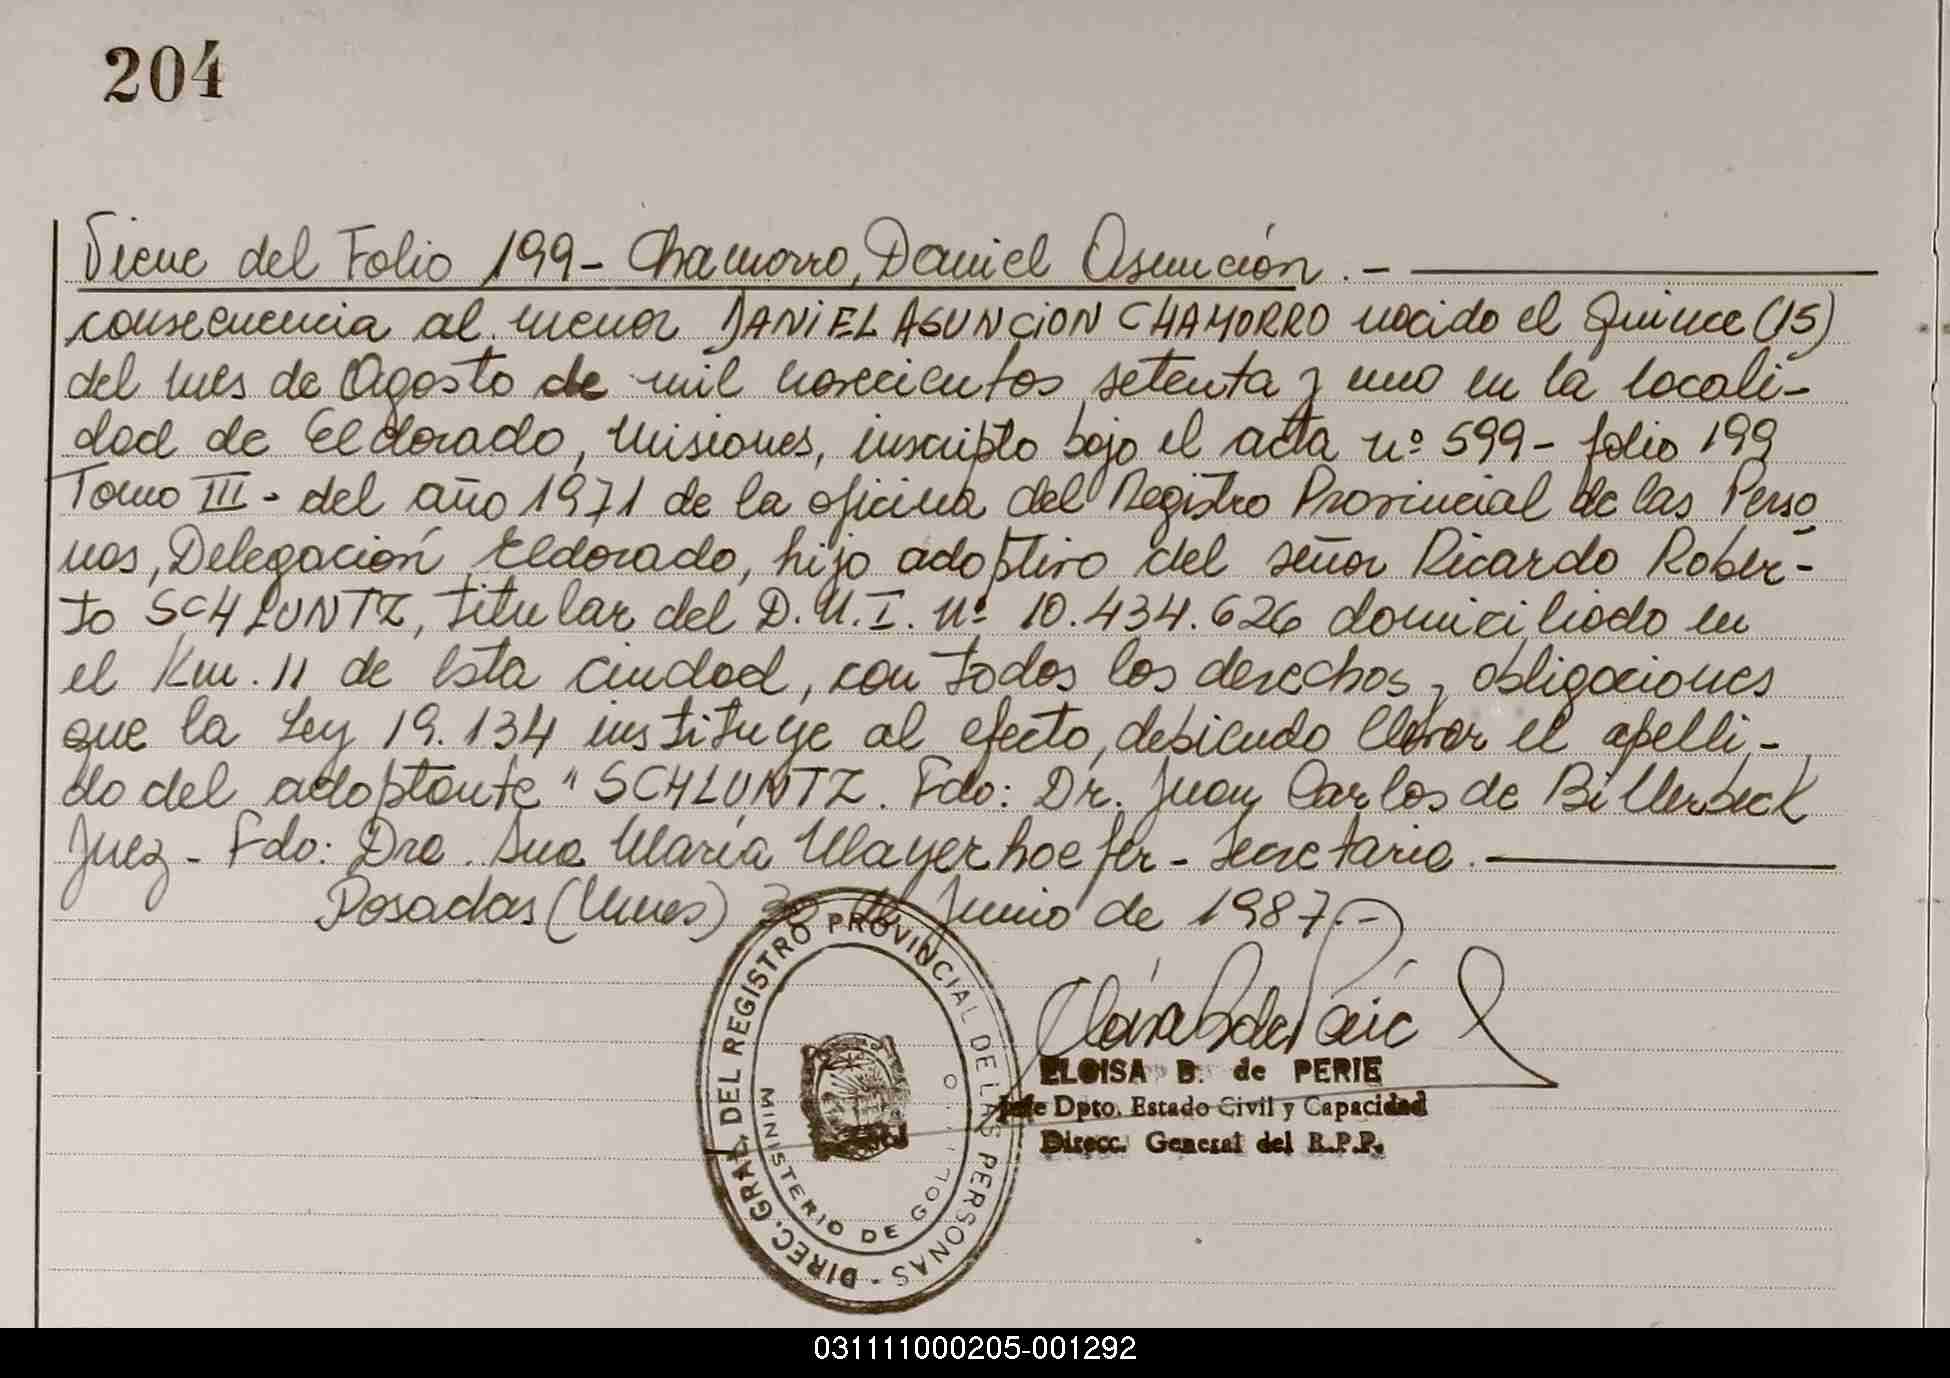 204
Viene del Folio 199 - Chamorro, Daniel Asunción. -
consecuencia al menor DANIEL ASUNCION CHAMORRO nacido el Quince (15)
del mes de Agosto de mil novecientos setenta y uno en la locali-
dad de Eldorado, Misiones, inscripto bajo el acta nº 599 - folio 199
Tomo III - del año 1971 de la oficina del Registro Provincial de las Perso
nas, Delegación Eldorado, hijo adoptivo del señor Ricardo Rober-
to SCHLUNTZ, titular del D.N.I. Nº 10.434.626 domiciliado en
el Km. 11 de esta ciudad, con todos los derechos y obligaciones
que la Ley 19.134 instituye al efecto, debiendo llevar el apelli-
do del adoptante "SCHLUNTZ. Fdo: Dr. Juan Carlos de Billerbeck
Juez - Fdo: Dra. Ana María Mayerhoefer - Secretaria. -
Posadas (Mnes) Junio de 1987. -
DIREC. GRAL. DEL REGISTRO PROVINCIAL DE LAS PERSONAS -
MINISTERIO DE GO
ELOISA B. de PERIE
Jefe Dpto. Estado Civil y Capacidad
Direcc. General del R.P.P.
031111000205-001292